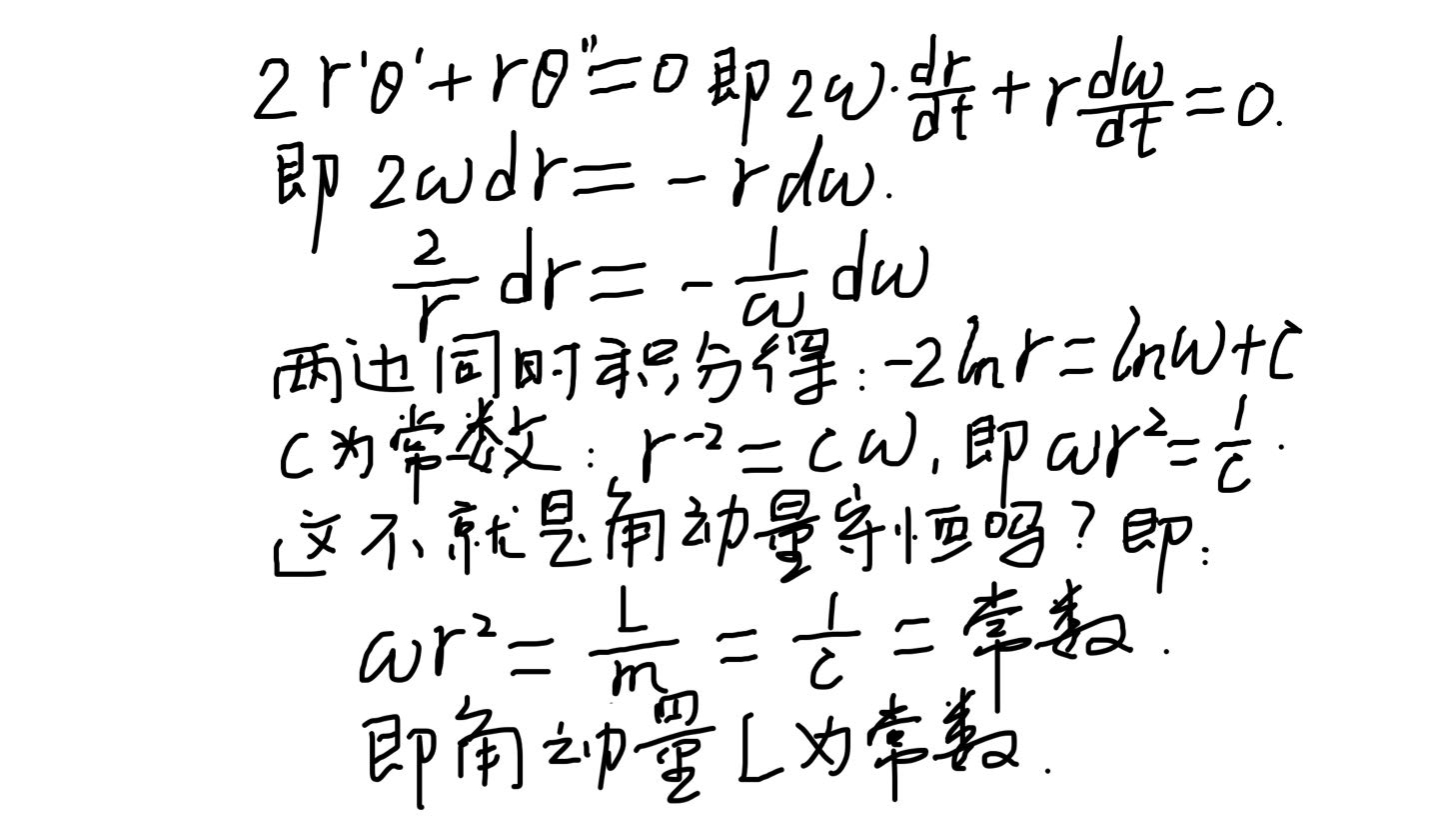 2r'θ'+rθ''=0 即 2ω·dr/dt+r dω/dt=0.
即 2ωdr=-rdω.
2/r dr=-1/ω dω
两边同时积分得:-2lnr=lnω+C
C为常数:r⁻²=Cω,即ωr²=1/C.
这不就是角动量守恒吗?即:
ωr²=L/m=1/C=常数.
即角动量L为常数.